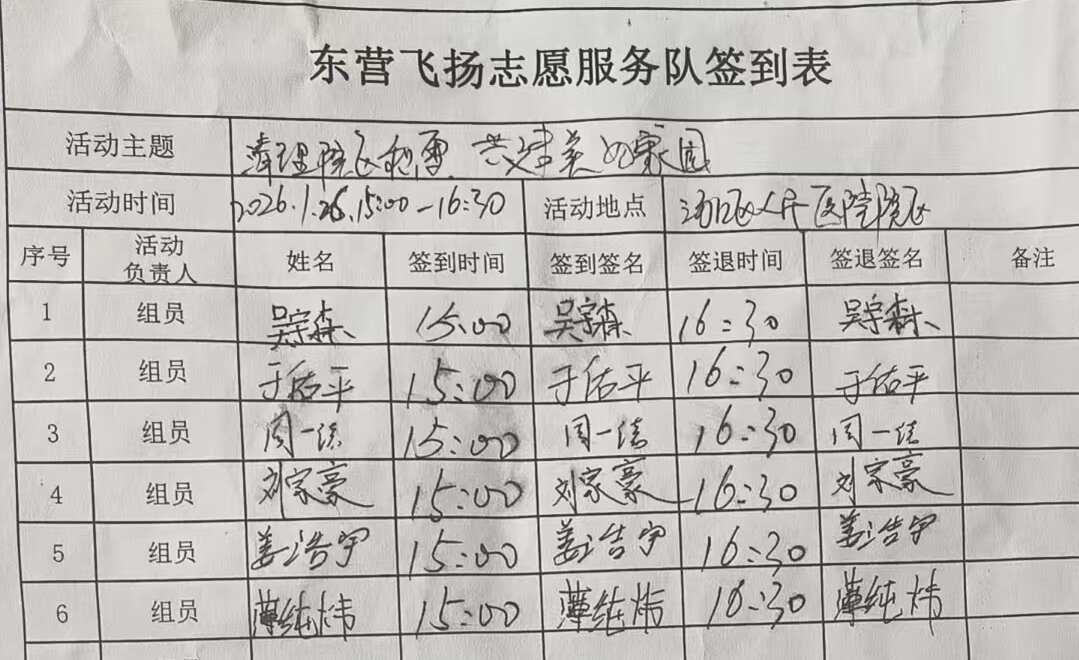 东营飞扬志愿服务队签到表
活动主题 清理院区积雪 共建美好家园
活动时间 2026.1.26.15:00-16:30 活动地点 河口区人民医院院区
序号 活动负责人 姓名 签到时间 签到签名 签退时间 签退签名 备注
1 组员 吴宗森 15:00 吴宗森 16:30 吴宗森
2 组员 于佑平 15:00 于佑平 16:30 于佑平
3 组员 周一 15:00 周一 16:30 周一
4 组员 刘家豪 15:00 刘家豪 16:30 刘家豪
5 组员 姜浩宇 15:00 姜浩宇 16:30 姜浩宇
6 组员 薄纯炜 15:00 薄纯炜 16:30 薄纯炜